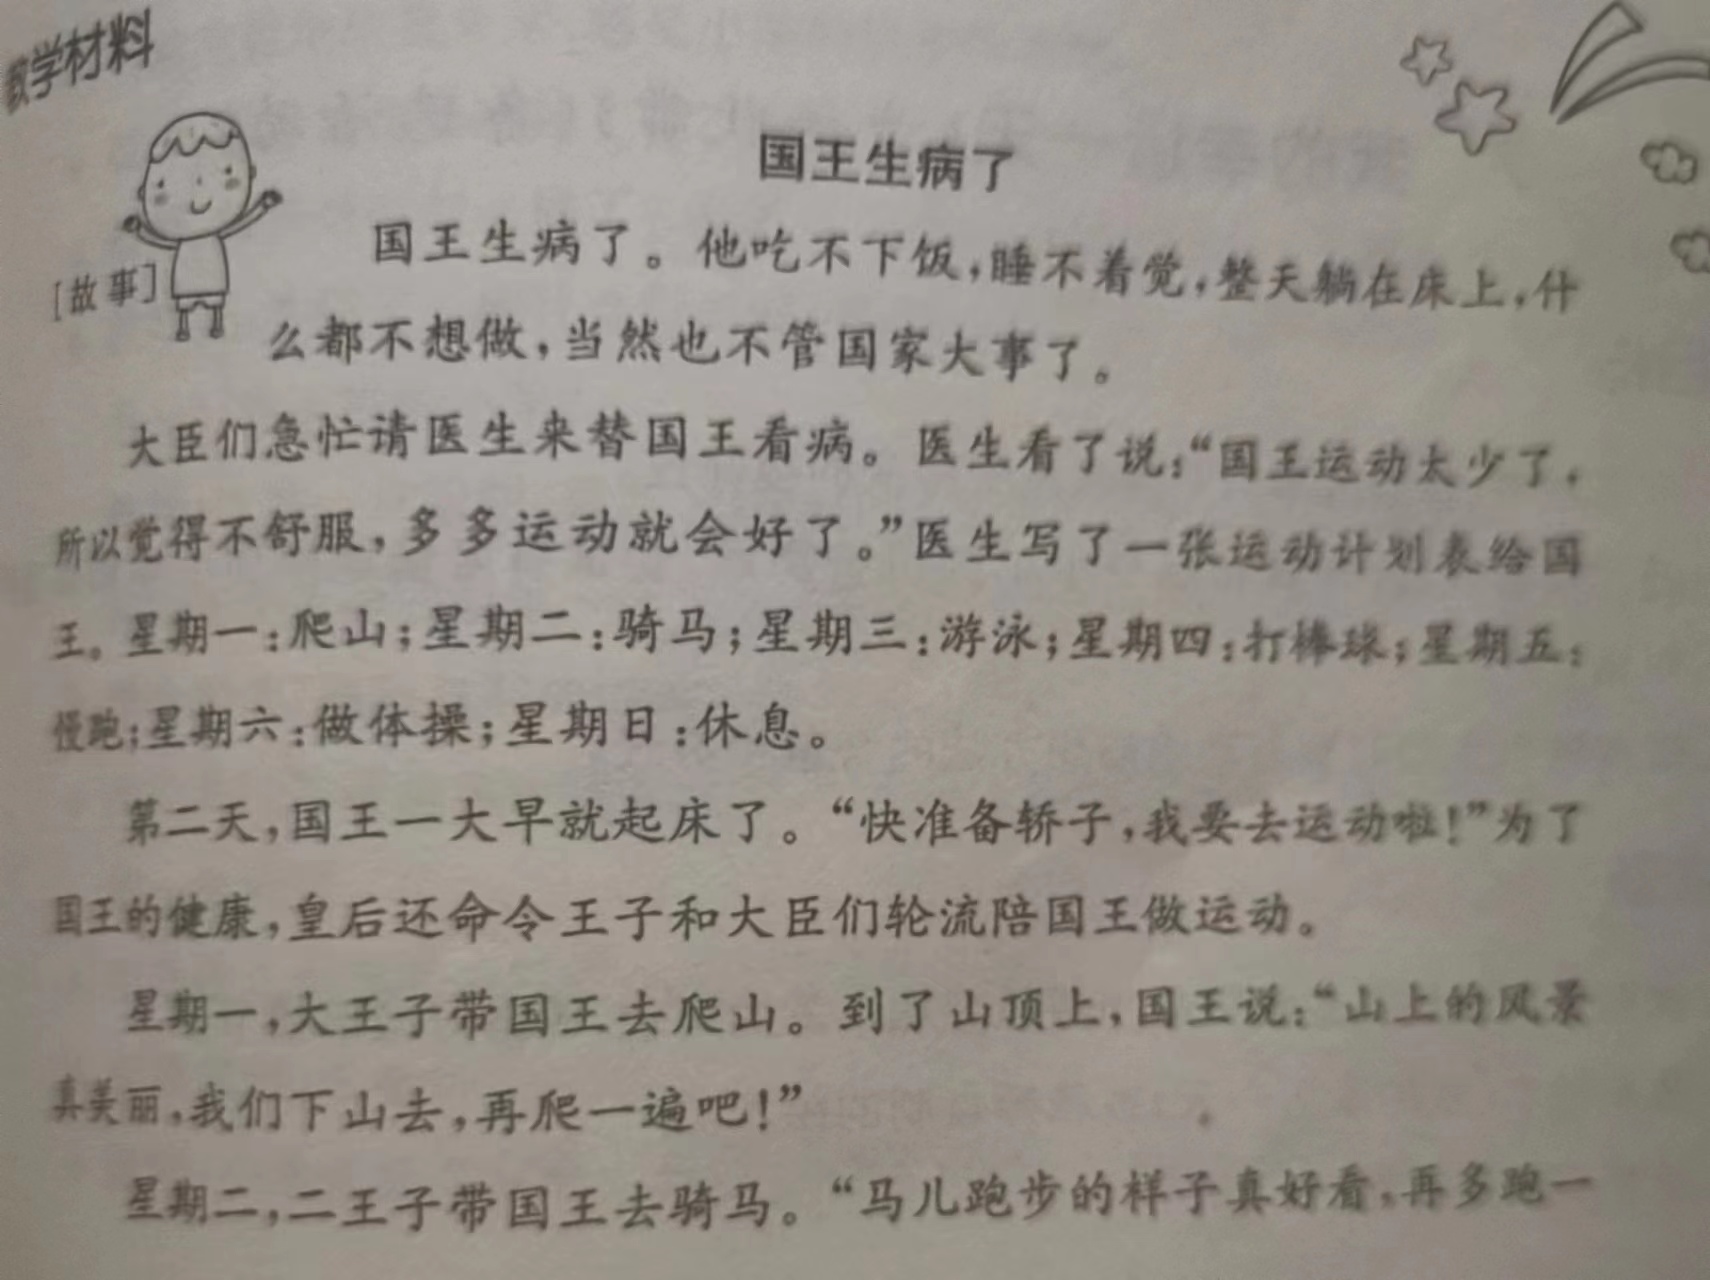 教学材料
国王生病了
[故事]
国王生病了。他吃不下饭,睡不着觉,整天躺在床上,什
么都不想做,当然也不管国家大事了。
大臣们急忙请医生来替国王看病。医生看了说:“国王运动太少了,
所以觉得不舒服,多多运动就会好了。”医生写了一张运动计划表给国
王。星期一:爬山;星期二:骑马;星期三:游泳;星期四:打棒球;星期五:
慢跑;星期六:做体操;星期日:休息。
第二天,国王一大早就起床了。“快准备轿子,我要去运动啦!”为了
国王的健康,皇后还命令王子和大臣们轮流陪国王做运动。
星期一,大王子带国王去爬山。到了山顶上,国王说:“山上的风景
真美丽,我们下山去,再爬一遍吧!”
星期二,二王子带国王去骑马。“马儿跑步的样子真好看,再多跑一